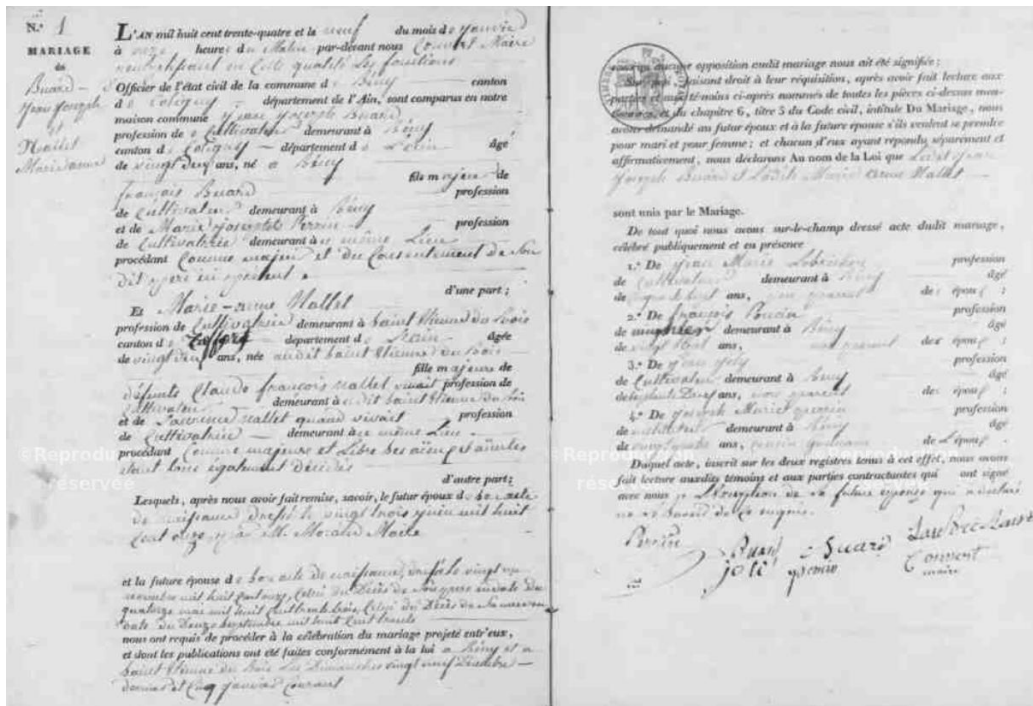 N.º 1
MARIAGE
de
Buard
Jean Joseph
et
Nallet
Marie anne
L'AN mil huit cent trente-quatre et le neuf du mois de janvier
à onze heures du Matin par-devant nous Convert Maire
en Cette qualité Les fonctions
Officier de l'état civil de la commune de Bény canton
de Coligny département de l'Ain, sont comparus en notre
maison commune Jean Joseph Buard
profession de Cultivateur demeurant à Bény
canton de Coligny département de L'ain âgé
de vingt deux ans, né à Bény
fils majeur de
françois Buard profession
de Cultivateur demeurant à Bény
et de Marie Josephte Perrin profession
de Cultivatrice demeurant à même Lieu
procédant Comme majeur et du Consentement de Son
dit père ici présent.
d'une part ;
Et Marie-anne Nallet
profession de Cultivatrice demeurant à Saint Etienne du Bois
canton de département de L'ain âgée
de vingt deux ans, née audit Saint Etienne du Bois
fille majeure de
défunts Claude françois Nallet vivait profession de
Cultivateur demeurant à dit Saint Etienne du Bois
et de Nallet quand vivait profession
de Cultivatrice demeurant à même Lieu
procédant Comme majeure et Libre ses
étant tous également décédés
d'autre part;
Lesquels, après nous avoir fait remise, savoir, le futur époux de Son acte
de naissance dressé le vingt trois juin mil huit
Cent onze par M. Morand Maire
et la future épouse de Son acte de naissance, du vingt
novembre mil huit Cent onze, Celui du Décès de Son père en date du
quatorze mai mil huit Cent trente trois, Celui du Décès de Sa mère en
date du Douze Septembre mil huit Cent trente
nous ont requis de procéder à la célébration du mariage projeté entr'eux,
et dont les publications ont été faites conformément à la loi à Bény et à
Saint Etienne du Bois Les Dimanches vingt neuf Décembre
dernier et Cinq janvier Courant
aucune opposition audit mariage nous ait été signifiée ;
faisant droit à leur réquisition, après avoir fait lecture aux
parties et aux témoins ci-après nommés de toutes les pièces ci-dessus men-
et du chapitre 6, titre 5 du Code civil, intitulé Du Mariage, nous
avons demandé au futur époux et à la future épouse s'ils veulent se prendre
pour mari et pour femme ; et chacun d'eux ayant répondu séparément et
affirmativement, nous déclarons Au nom de la Loi que Ledit Jean
Joseph Buard et Ladite Marie anne Nallet
sont unis par le Mariage.
De tout quoi nous avons sur-le-champ dressé acte dudit mariage,
célébré publiquement et en présence
1.º De Jean Marie profession
de Cultivateur demeurant à Bény âgé
de ans, non parent des époux ;
2.º De François Poncin
de demeurant à Bény âgé
de vingt huit ans, non parent des époux ;
3.º De Jean Joly profession
de Cultivateur demeurant à Bény âgé
de ans, non parent des époux ;
4.º De Joseph Marie Perrin profession
de demeurant à Bény âgé
de ans, cousin germain de L'époux
Duquel acte, inscrit sur les deux registres tenus à cet effet, nous avons
fait lecture auxdits témoins et aux parties contractantes qui ont signé
avec nous à L'exception de la future épouse qui a déclaré
ne le Savoir de Ce enquis.
Perrin
Buard
Buard
joli
poncin
Convert
maire
©Reproduction
réservée
©Reproduction
réservée